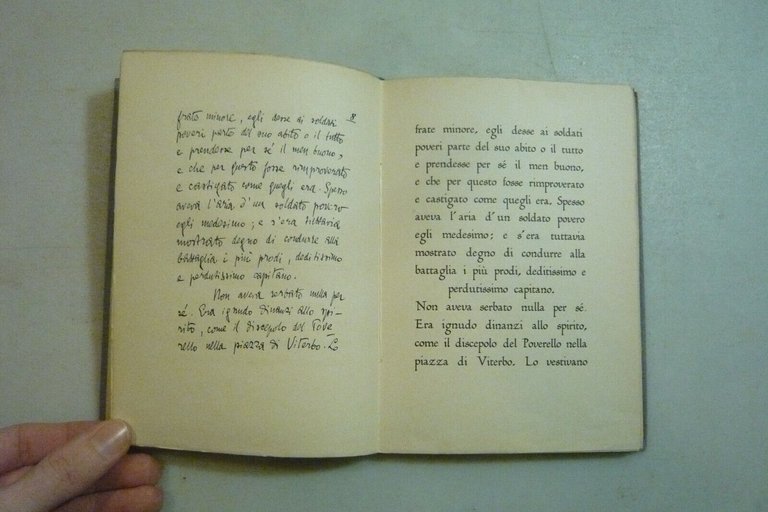 frate minore, egli desse ai soldati
8
poveri parte del suo abito o il tutto
e prendesse per sé il men buono,
e che per questo fosse rimproverato
e castigato come quegli era. Spesso
aveva l'aria d'un soldato povero
egli medesimo; e s'era tuttavia
mostrato degno di condurre alla
battaglia i più prodi, deditissimo
e perdutissimo capitano.
Non aveva serbato nulla per
sé. Era ignudo dinanzi allo spi-
rito, come il discepolo del Pove-
rello nella piazza di Viterbo. Lo
frate minore, egli desse ai soldati
poveri parte del suo abito o il tutto
e prendesse per sé il men buono,
e che per questo fosse rimproverato
e castigato come quegli era. Spesso
aveva l'aria d'un soldato povero
egli medesimo; e s'era tuttavia
mostrato degno di condurre alla
battaglia i più prodi, deditissimo e
perdutissimo capitano.
Non aveva serbato nulla per sé.
Era ignudo dinanzi allo spirito,
come il discepolo del Poverello nella
piazza di Viterbo. Lo vestivano